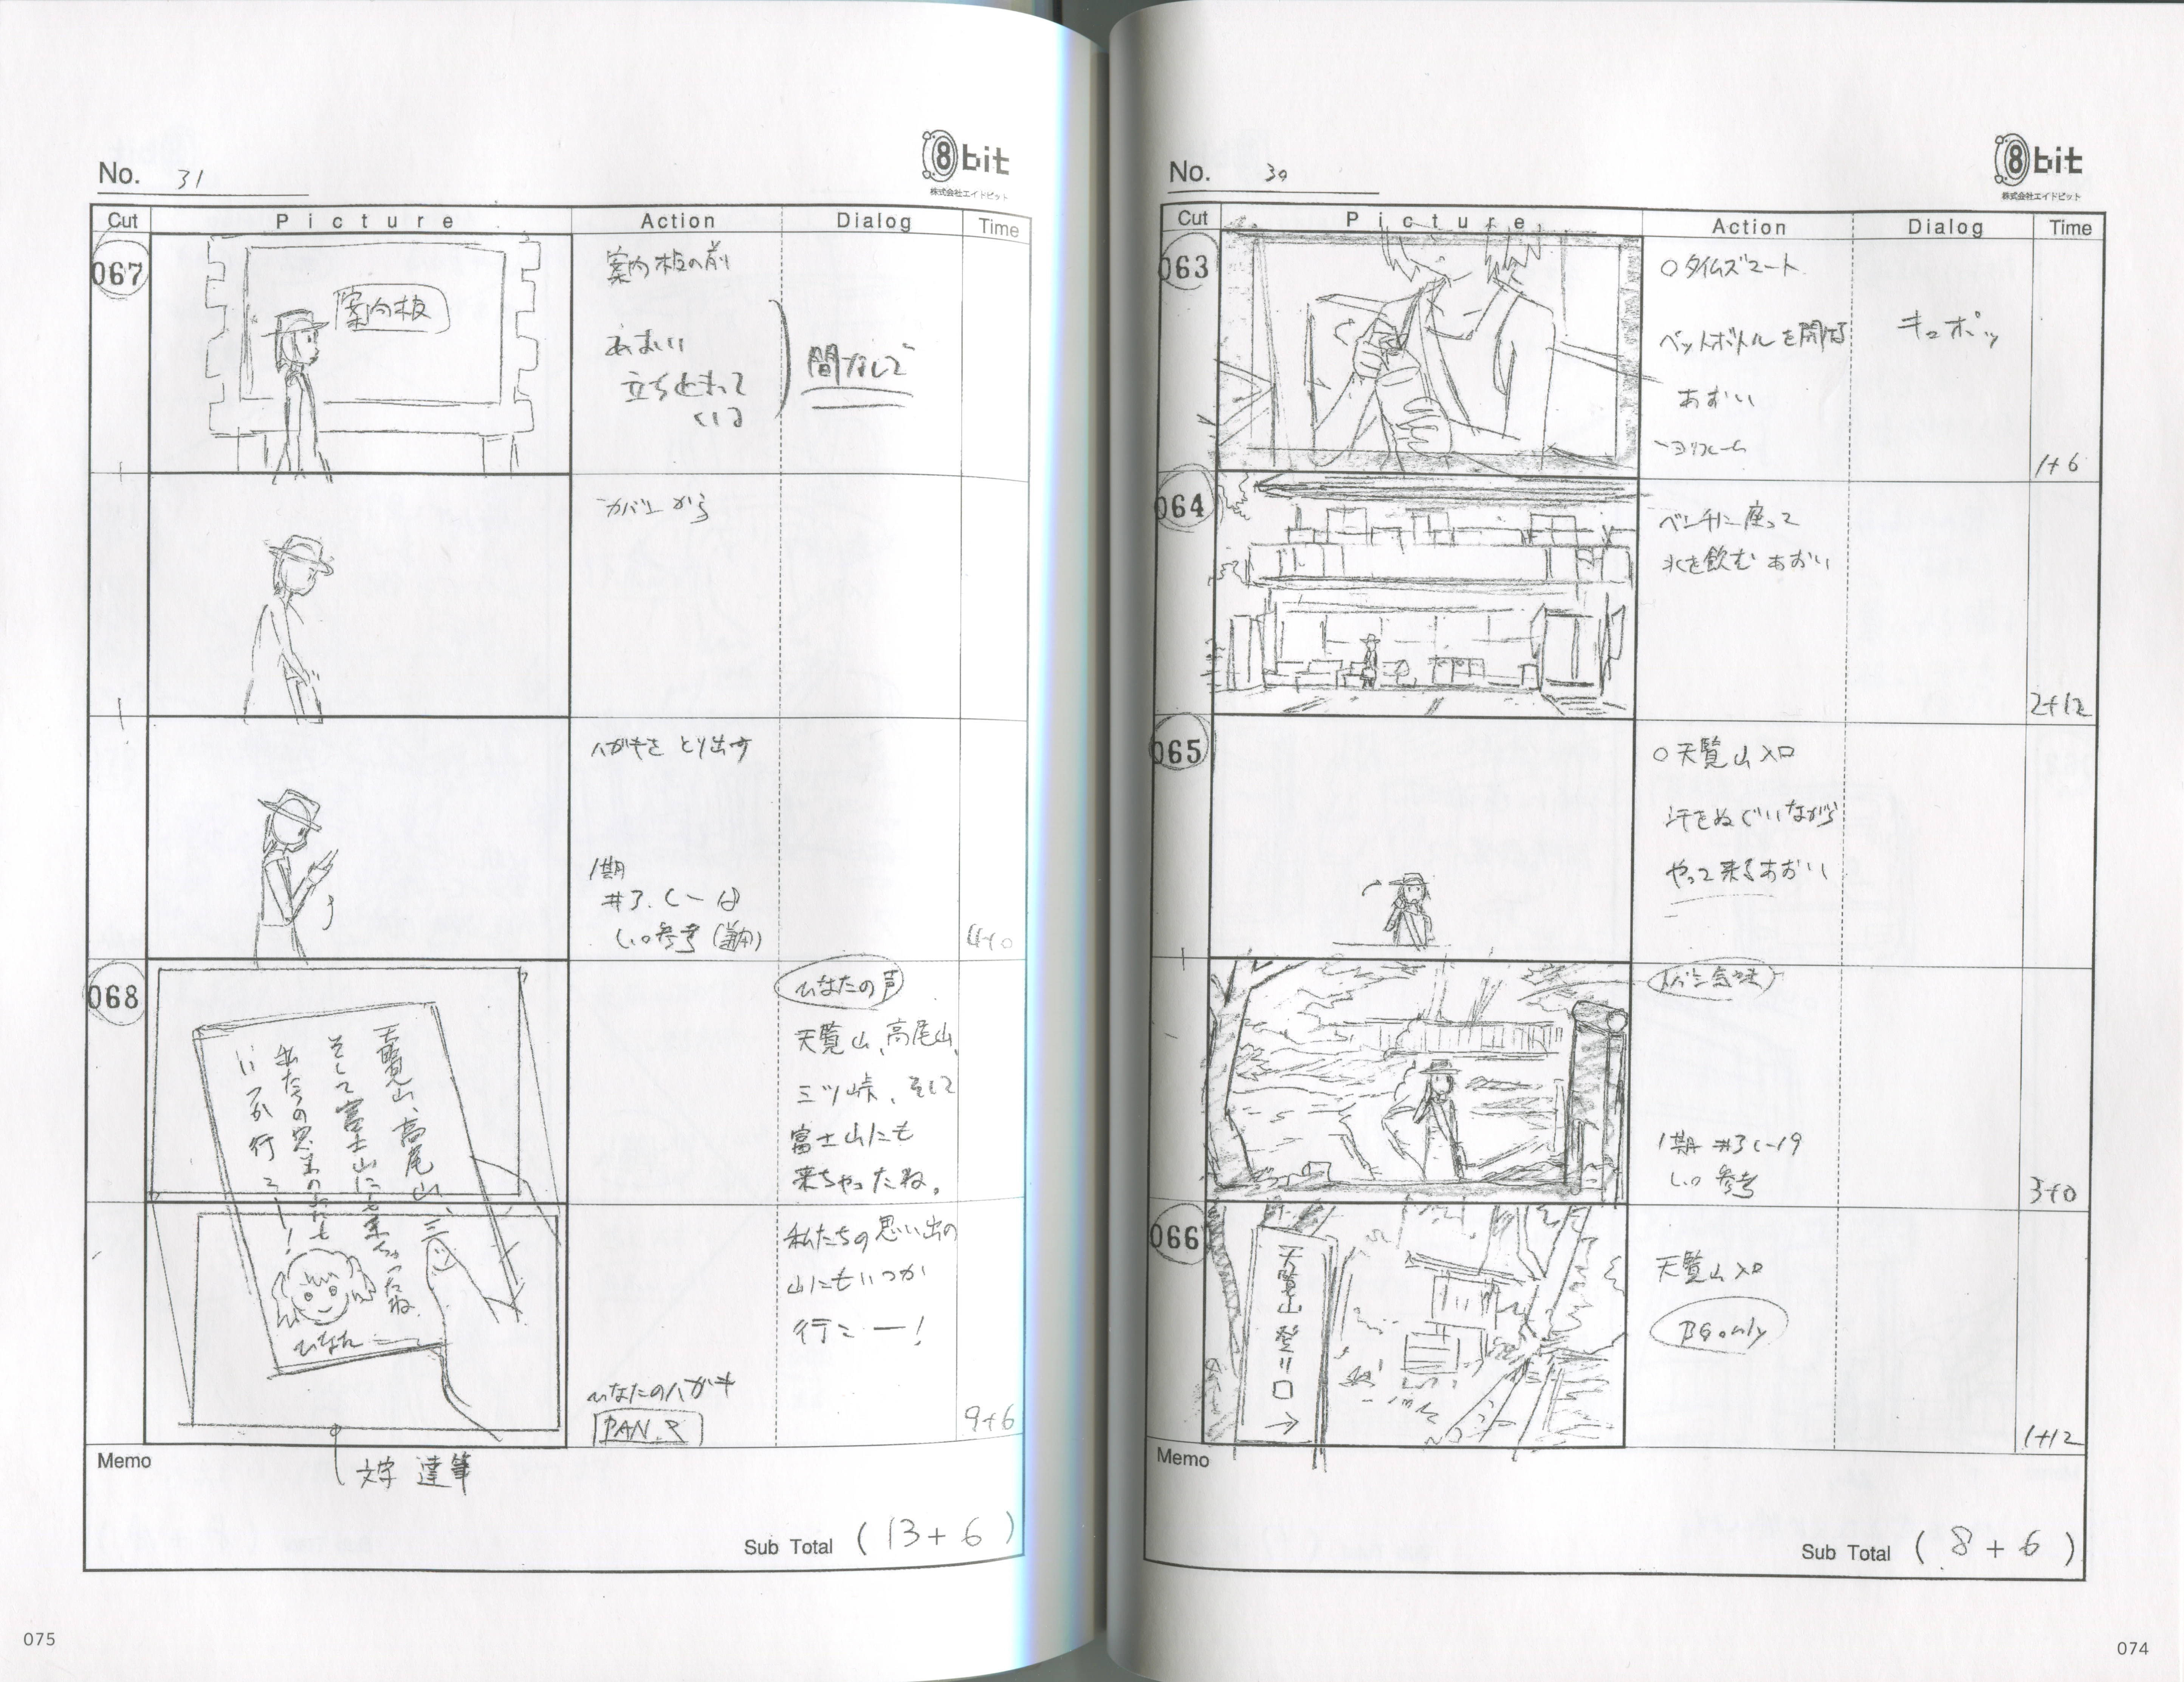 No. 30
8bit
株式会社エイトビット
Cut Picture Action Dialog Time
063
○タイムズマート
ペットボトルを開ける
キュポッ
あおい
1+6
064
ベンチに座って
水を飲む あおい
2+12
065
○天覧山入口
汗をぬぐいながら
やって来るあおい
1期 #3 C-19
L.O 参考
3+0
066
天覧山 登り口 →
天覧山入口
BG only
1+12
Memo
Sub Total ( 8 + 6 )
074
No. 31
8bit
株式会社エイトビット
Cut Picture Action Dialog Time
067
案内板
案内板の前
あおい
立ち止まって
いる
間なしで
カバンから
ハガキを とり出す
1期
L.O 参考
4+0
068
天覧山、高尾山、三
いつか行こー!
ひなた
ひなたの声
天覧山、高尾山、
三ツ峠、そして
富士山にも
来ちゃったね。
私たちの思い出の
山にもいつか
行こー!
ひなたのハガキ
9+6
Memo
文字 達筆
Sub Total ( 13 + 6 )
075